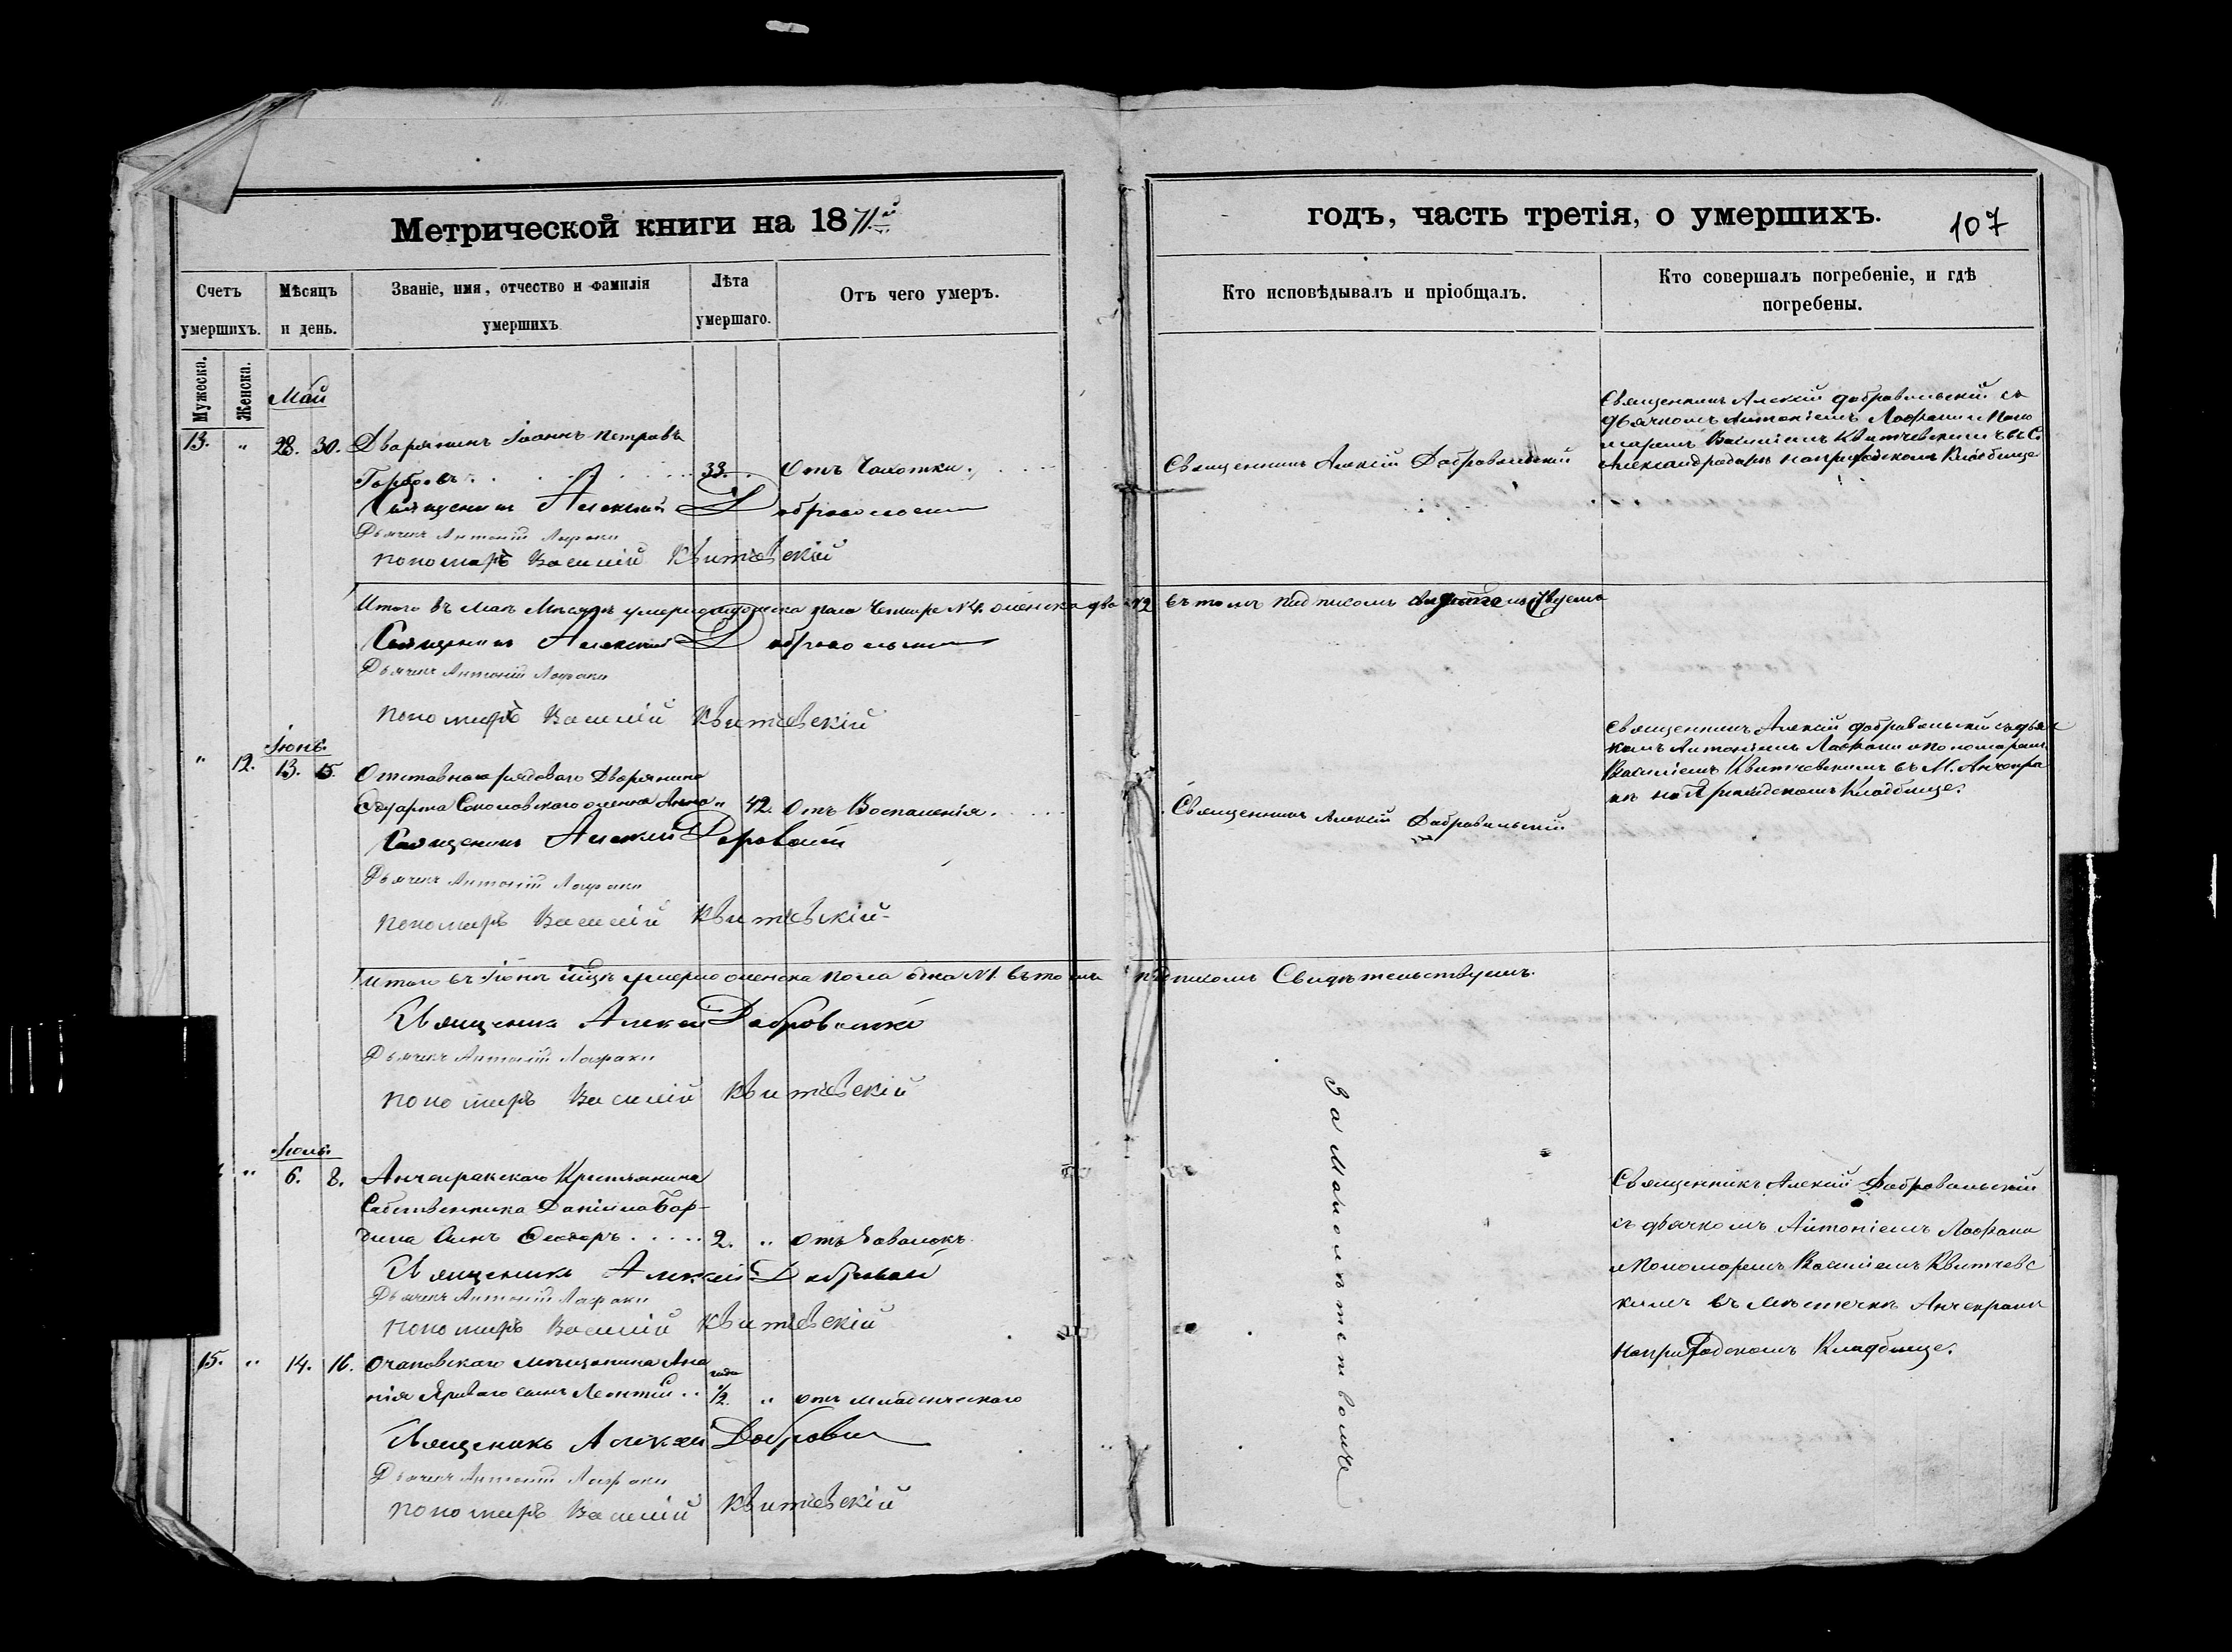 Метрической книги на 1871й
годъ, часть третія, о умершихъ.
107
Счетъ умершихъ.
Мѣсяцъ и день.
Званіе, имя, отчество и фамилія умершихъ
Лѣта умершаго.
Отъ чего умеръ.
Кто исповѣдывалъ и пріобщалъ.
Кто совершалъ погребеніе, и гдѣ погребены.
Мужеска.
Женска.
Май
13. " 28. 30. Дворянинъ Іоаннъ Петровъ
Горбовъ 33. Отъ Чахотки.
Священникъ Алексій Добровольскій
Священникъ Алексій Добровольскій съ
дьячкомъ Антоніемъ Лафаки и Поно
маремъ Василіемъ Квитчевскимъ въ С.
Александродаръ на приходскомъ Кладбище
Священникъ Алексий Добровольский
Дьячекъ Антоній Лафаки
пономарь Василій Квитчевскій
Итого въ Маѣ Мѣсяцѣ умерло мужеска пола четыре №4. женска два №2 въ томъ подписомъ свидѣтельствуемъ
Священникъ Алексий Добровольский
Дьячекъ Антоній Лафаки
пономарь Василій Квитчевскій
Іюнь.
" 12. 13. 15. Отставнаго рядоваго Дворянина
Эдуарта Соколовскаго жена Анна " 42. Отъ Воспаленія.
Священникъ Алексій Добровольскій
Священникъ Алексій Добровольскій съ дьяч
комъ Антоніемъ Лафаки и пономаремъ
Василіемъ Квитчевскимъ въ М. Анчекра
кѣ на Приходскомъ Кладбище.
Священникъ Алексий
Дьячекъ Антоній Лафаки
пономарь Василій Квитчевскій
Итого въ Іюнѣ мцѣ умерло женска пола одна №1. въ томъ подписомъ Свидѣтельствуемъ.
Священикъ Алексей Добровольский
Дьячекъ Антоній Лафаки
пономарь Василій Квитчевскій
Іюль.
" 6. 8. Анчекракскаго Крестьянина
Собственника Даніила Бор-
дина Сынъ Феодоръ 2. "
Священикъ Алексей
Дьячекъ Антоній Лафаки
пономарь Василій Квитчевскій
Священникъ Алексій Добровольскій
съ дьячкомъ Антоніемъ Лафаки
и Пономаремъ Василіемъ Квитчевс
кимъ въ мѣстечкѣ Анчекракѣ
на приходскомъ Кладбище.
За малолѣтствомъ
15. " 14. 16. Очаковскаго мѣщанина Ана
нія Яроваго сынъ Леонтій года 1/2. " отъ младенческаго
Священикъ Алексей
Дьячекъ Антоній Лафаки
пономарь Василій Квитчевскій